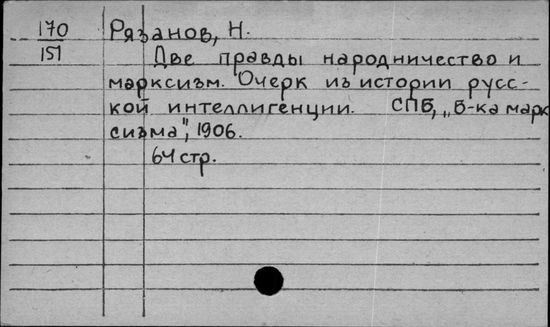 170 Рязанов, Н.
151 Две правды народничество и
марксизм. Очерк из истории русс-
кой интеллигенции. СПБ, „Б-ка марк
сизма", 1906.
64 стр.